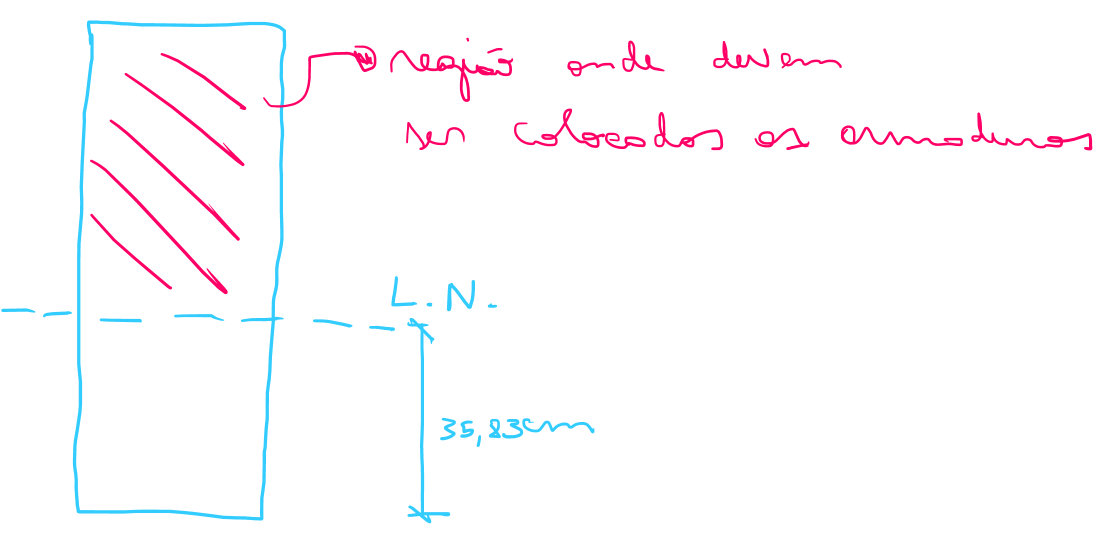 região onde devem
ser colocados as armaduras
L.N.
35,83cm